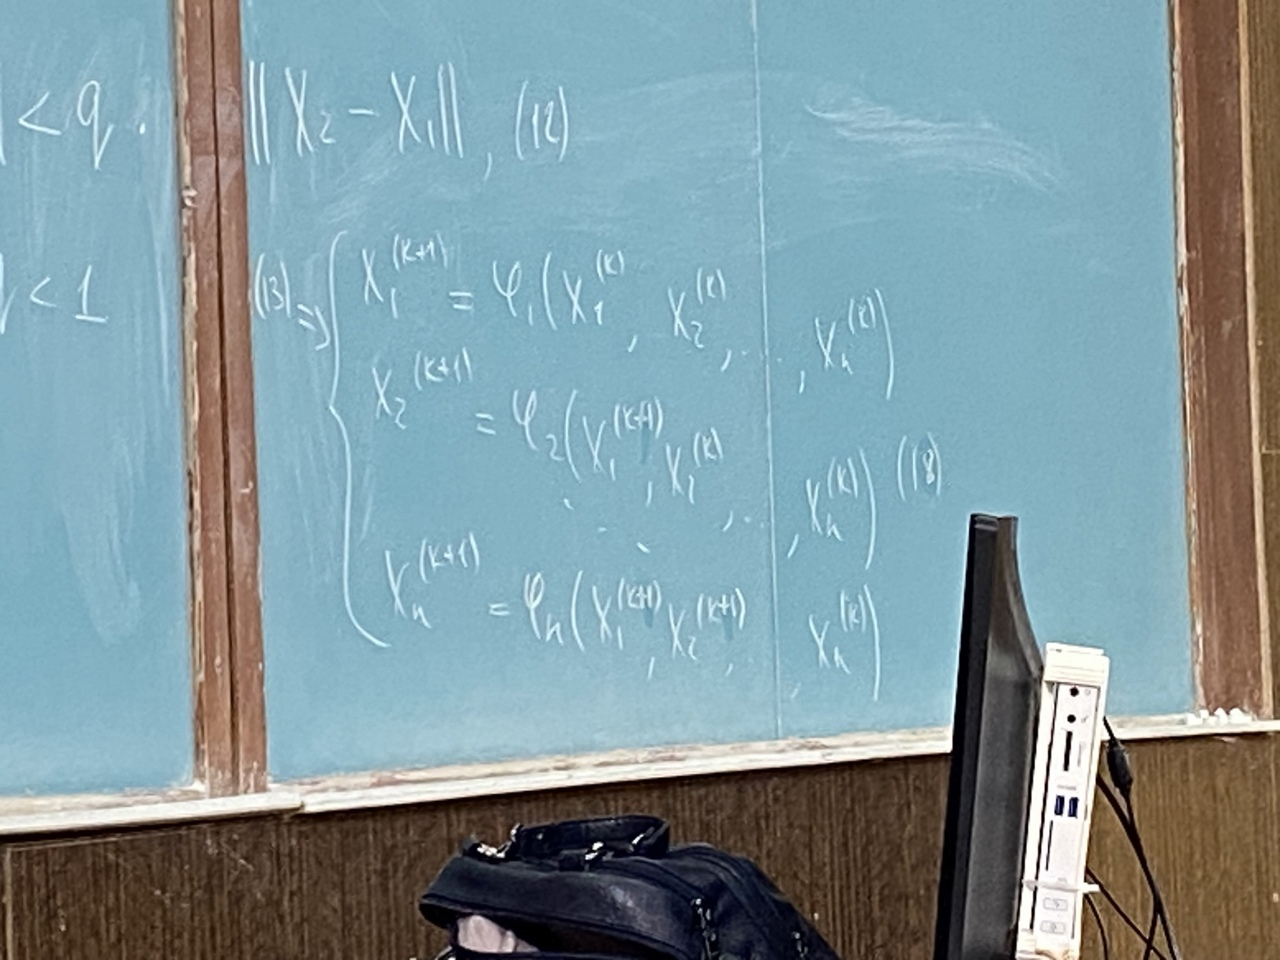 < q · || X₂ - X₁ ||, (12)
< 1
(13) => { X₁^(k+1) = φ₁(X₁^(k), X₂^(k), ..., Xₙ^(k))
X₂^(k+1) = φ₂(X₁^(k+1), X₂^(k), ..., Xₙ^(k)) (18)
. . .
Xₙ^(k+1) = φₙ(X₁^(k+1), X₂^(k+1), , Xₙ^(k))